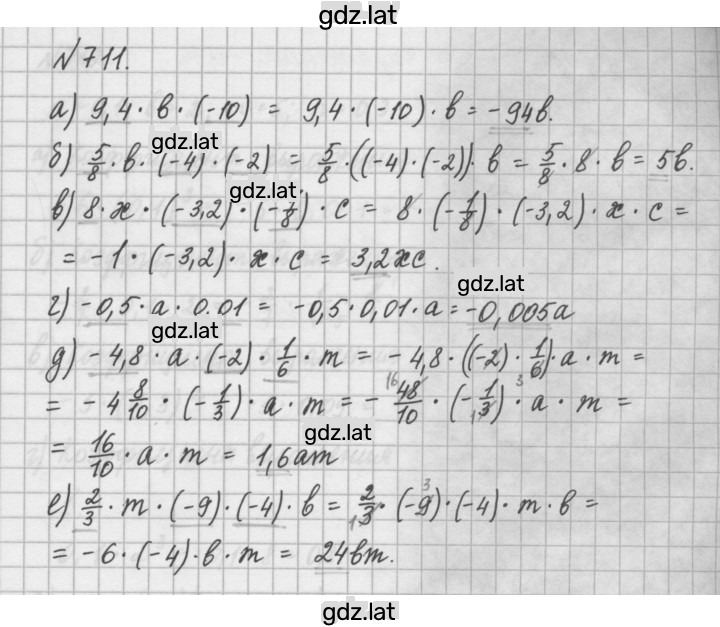 gdz.lat
№711.
а) 9,4 · в · (-10) = 9,4 · (-10) · в = -94в.
gdz.lat
б) 5/8 · в · (-4) · (-2) = 5/8 · ((-4) · (-2)) · в = 5/8 · 8 · в = 5в.
gdz.lat
в) 8 · х · (-3,2) · (-1/8) · с = 8 · (-1/8) · (-3,2) · х · с =
= -1 · (-3,2) · х · с = 3,2хс.
gdz.lat
г) -0,5 · а · 0.01 = -0,5 · 0,01 · а = -0,005а
gdz.lat
д) -4,8 · а · (-2) · 1/6 · m = -4,8 · ((-2) · 1/6) · а · m =
= -4 8/10 · (-1/3) · а · m = - 16 48/10 · (-1/3) 1 3 · а · m =
gdz.lat
= 16/10 · а · m = 1,6аm
е) 2/3 · m · (-9) · (-4) · в = 2/3 1 · (-9) 3 · (-4) · m · в =
= -6 · (-4) · в · m = 24вm.
gdz.lat